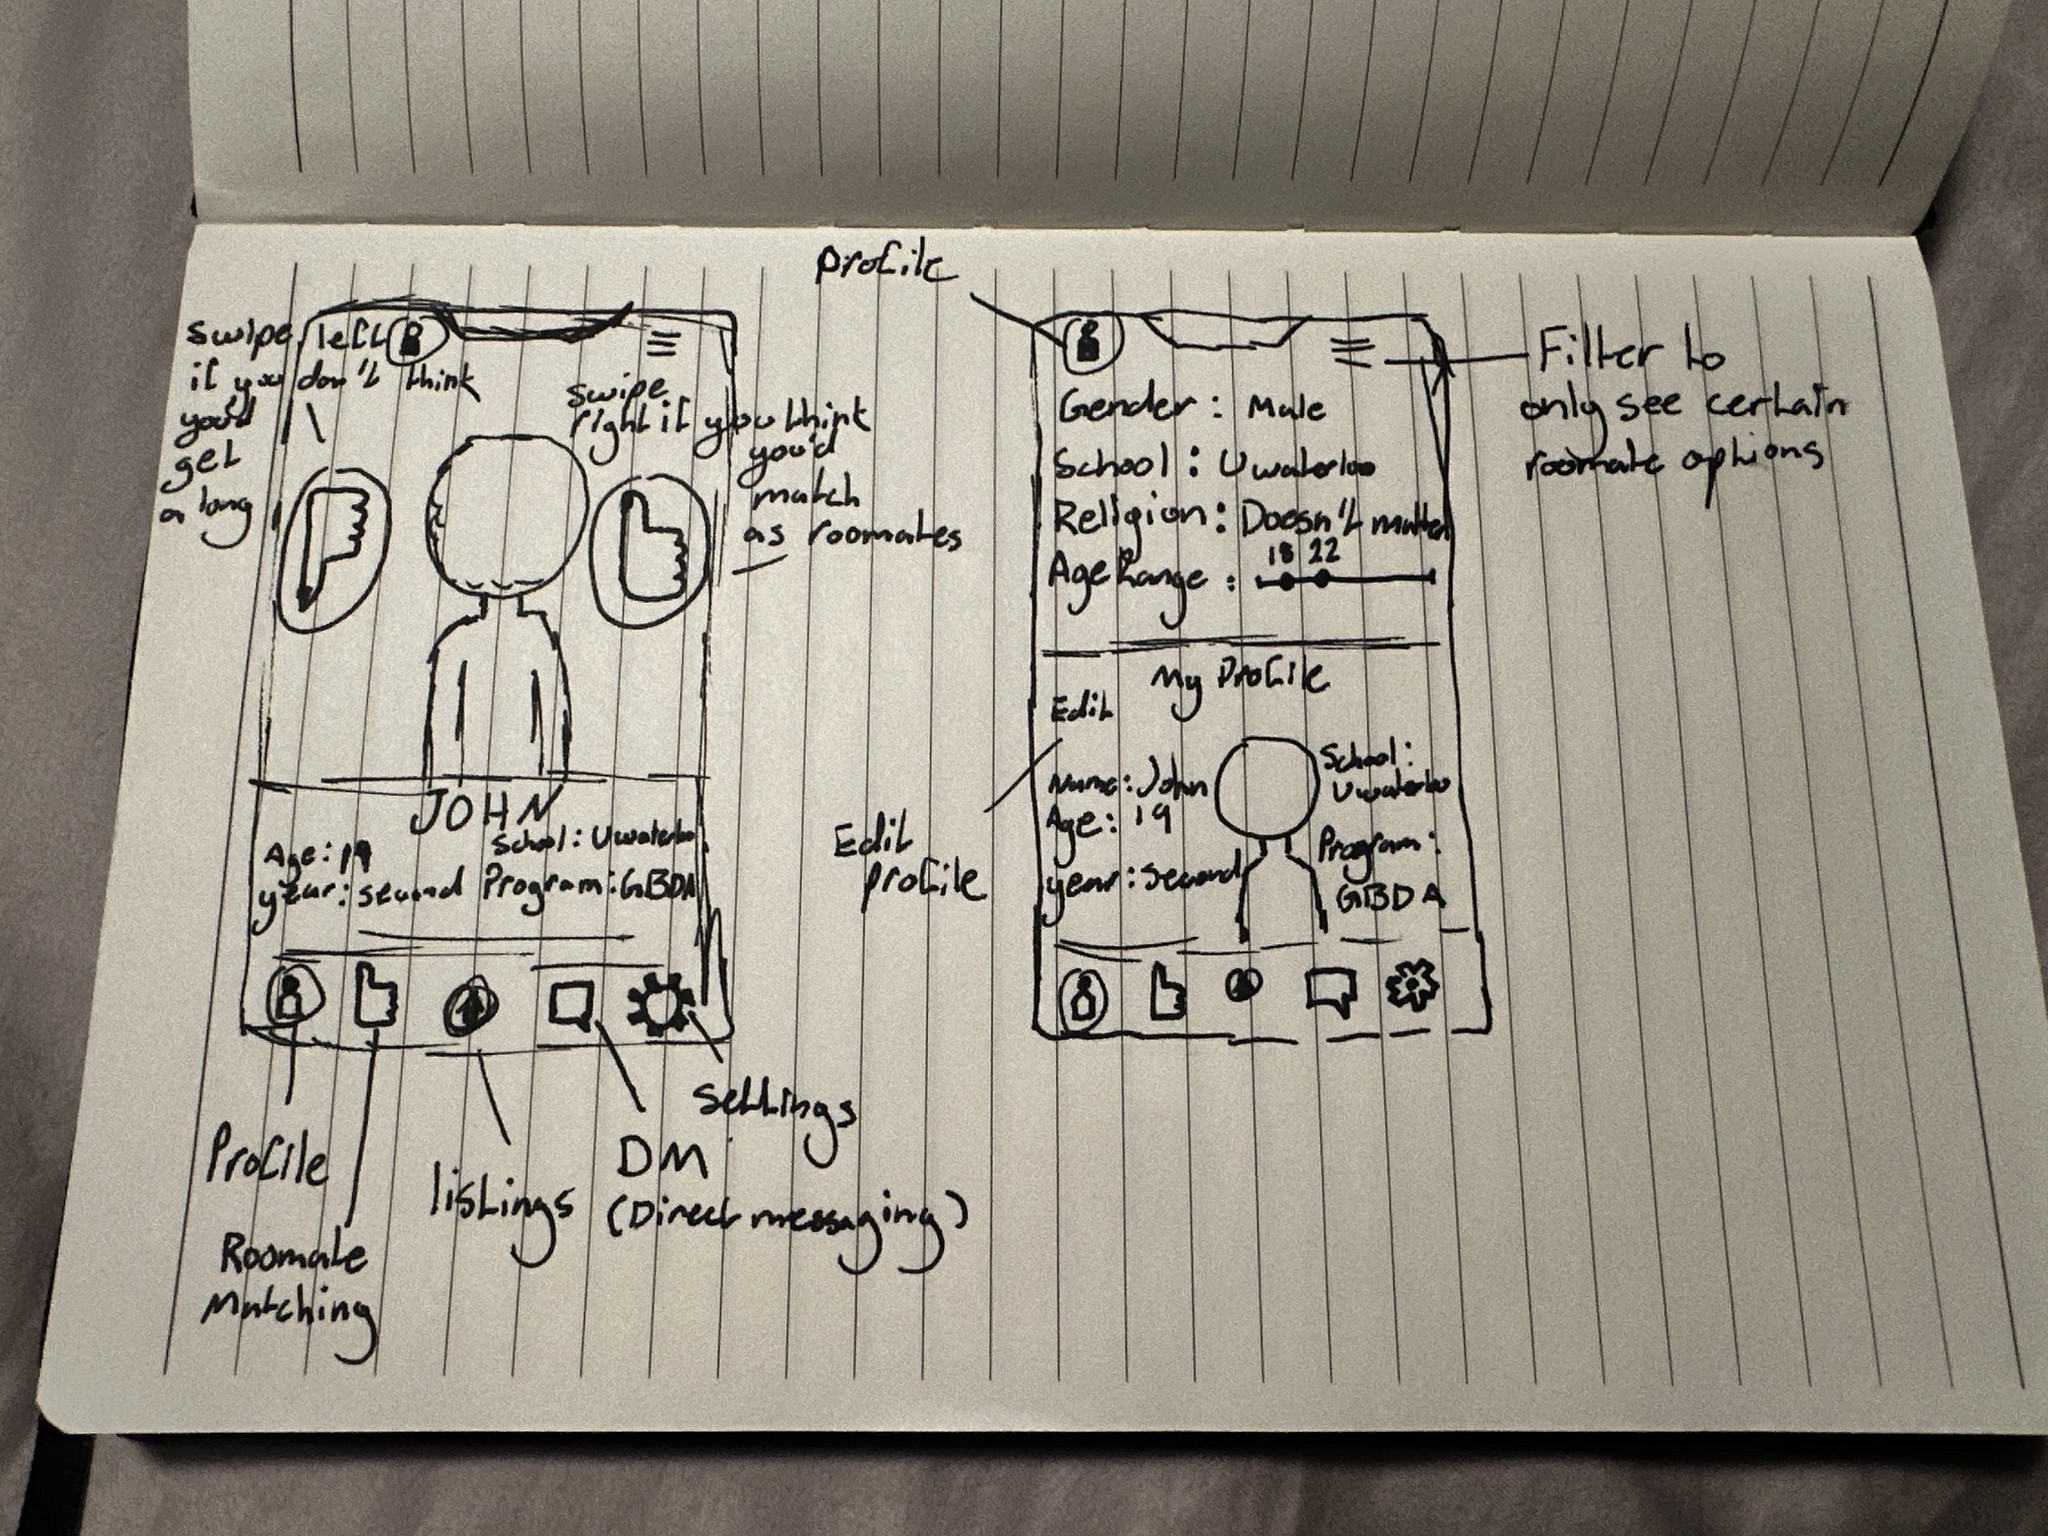 swipe left
if you don't think
you'd
get
a long
swipe
right if you think
you'd
match
as roomates
JOHN
Age: 19
School: Uwaterloo
year: second
Program: GBDA
Profile
Roomate
Matching
listings
DM
(Direct messaging)
settings
profile
Filter to
only see certain
roomate options
Gender: Male
School: Uwaterloo
Religion: Doesn't matter
18 22
Age Range:
My Profile
Edit
Name: John
School:
Uwaterloo
Age: 19
Program:
year: second
GBDA
Edit
profile